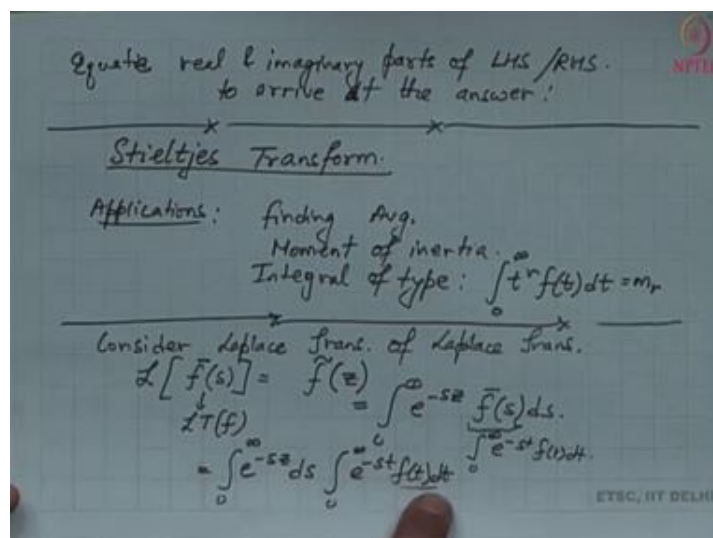 Equate real & imaginary parts of LHS/RHS.
to arrive at the answer!
Stieltjes Transform.
Applications: finding Avg.
Moment of inertia.
Integral of type: ∫₀^∞ tʳ f(t)dt = mᵣ
Consider Laplace Trans. of Laplace Trans.
ℒ[f̄(s)] = f̃(z) = ∫₀^∞ e^{-sz} f̄(s)ds.
↓
LT(f)
∫₀^∞ e^{-st} f(t)dt.
= ∫₀^∞ e^{-sz} ds ∫₀^∞ e^{-st} f(t)dt
NPTEL
ETSC, IIT DELHI